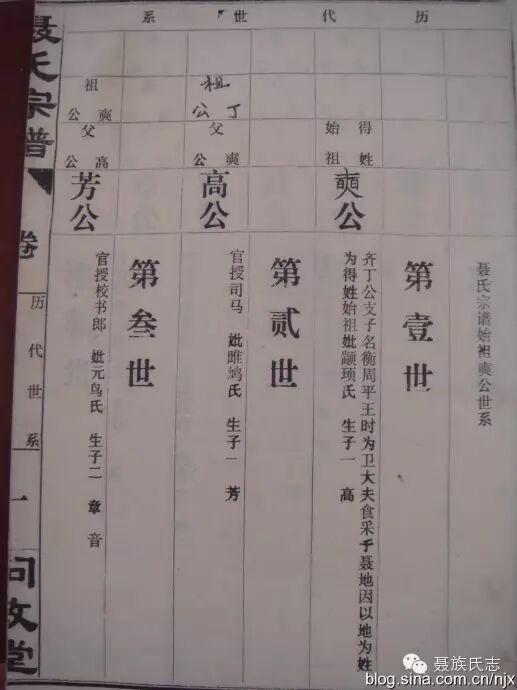 历代世系
聂氏宗谱始祖奭公世系
第壹世
得姓始祖
奭公
齐丁公支子名衡周平王时为卫大夫食采于聂地因以地为姓
为得姓始祖妣颛顼氏 生子一 高
第贰世
祖丁公
父奭公
高公
官授司马 妣雎鸠氏 生子一 芳
第叁世
祖奭公
父高公
芳公
官授校书郎 妣元鸟氏 生子二 章 音
聂氏宗谱
卷
历代世系
一
问政堂
聂族氏志
blog.sina.com.cn/njx